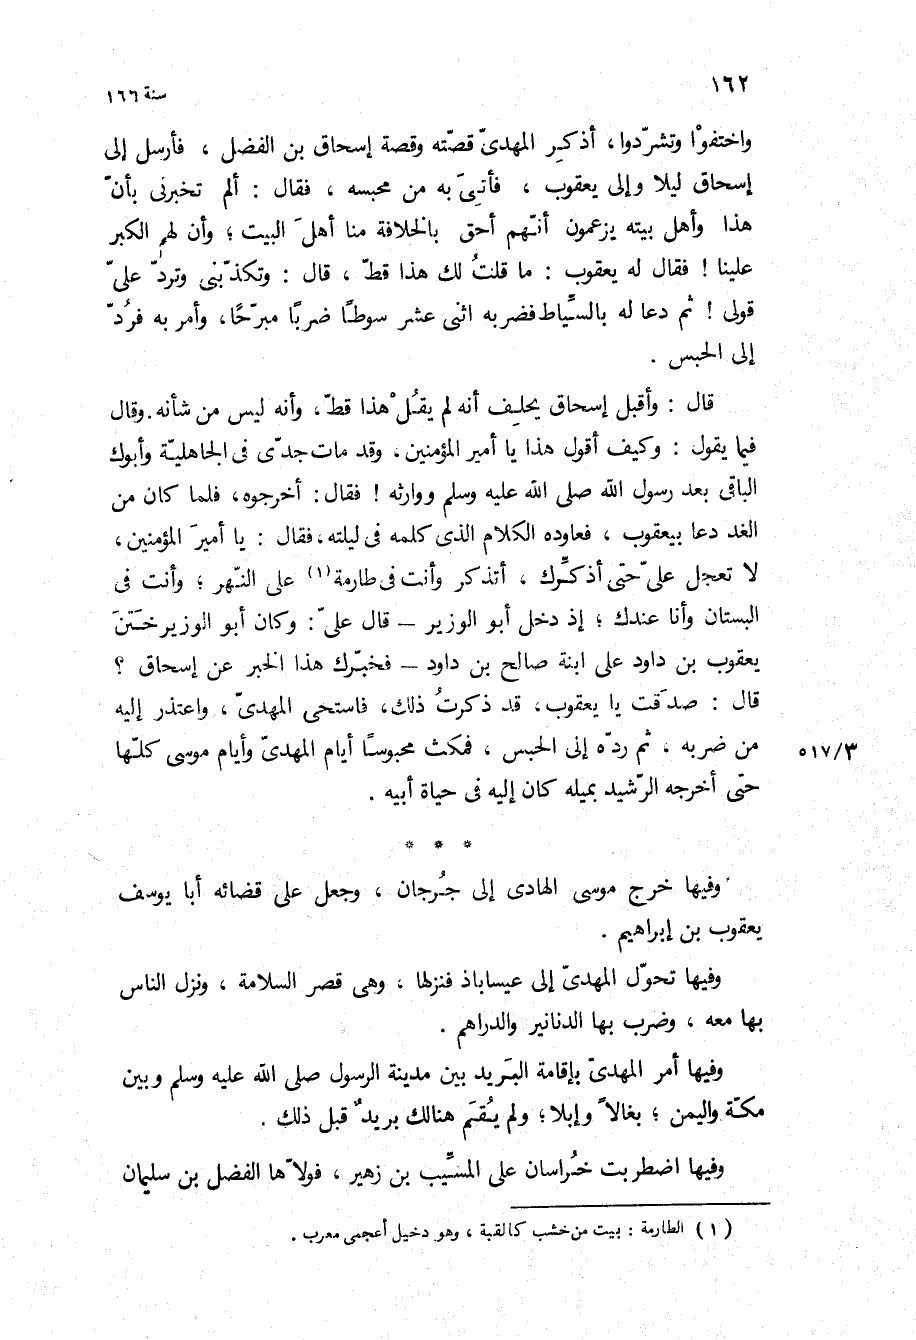 ١٦٢
سنة ١٦٦
واختفوْا وتشرّدوا، أذكِر المهدىّ قصّته وقصة إسحاق بن الفضل ، فأرسل إلى
إسحاق ليلا وإلى يعقوب ، فأتىَ به من محبسه ، فقال : ألم تخبرنى بأنّ
هذا وأهل بيته يزعمون أنّهم أحق بالخلافة منا أهلَ البيت ؛ وأن لهم الكبر
علينا ! فقال له يعقوب : ما قلتُ لك هذا قطّ ، قال : وتكذّبنى وتردّ علىّ
قولى ! ثم دعا له بالسِّياط فضربه اثنى عشر سوطًا ضربًا مبرّحًا، وأمر به فرُدّ
إلى الحبس .
قال : وأقبل إسحاق يحلِف أنه لم يقُلْ هذا قطّ، وأنه ليس من شأنه. وقال
فيما يقول : وكيف أقول هذا يا أمير المؤمنين، وقد مات جدّى فى الجاهليّة وأبوك
الباقى بعد رسول الله صلى الله عليه وسلم ووارثه ! فقال: أخرجوه، فلما كان من
الغد دعا بيعقوب ، فعاوده الكلام الذى كلمه فى ليلته، فقال : يا أميرَ المؤمنين،
لا تعجل علىّ حتى أذكِّرك ، أتذكر وأنت فى طارمة(١) على النّهر ؛ وأنت فى
البستان وأنا عندك ؛ إذ دخل أبو الوزير – قال علىّ : وكان أبو الوزير خَتَنَ
يعقوب بن داود على ابنة صالح بن داود – فخبّرك هذا الخبر عن إسحاق ؟
قال : صدَقت يا يعقوب، قد ذكرتُ ذلك، فاستحى المهدىّ ، واعتذر إليه
من ضربه ، ثم ردّه إلى الحبس ، فمكث محبوسًا أيام المهدىّ وأيام موسى كلّها
٥١٧/٣
حتّى أخرجه الرّشيد بميله كان إليه فى حياة أبيه .
* * *
وفيها خرج موسى الهادى إلى جُرجان ، وجعل على قضائه أبا يوسف
يعقوب بن إبراهيم .
وفيها تحوّل المهدىّ إلى عيساباذ فنزلها ، وهى قصر السلامة ، ونزل الناس
بها معه ، وضرب بها الدنانير والدراهم .
وفيها أمر المهدىّ بإقامة البَريد بين مدينة الرسول صلى الله عليه وسلم وبين
مكّة واليمن ؛ بغالاً وإبلا؛ ولم يُقَم هنالك بريدٌ قبل ذلك .
وفيها اضطربت خُراسان على المسيِّب بن زهير ، فولاّها الفضل بن سليمان
(١) الطارمة : بيت من خشب كالقبة ، وهو دخيل أعجمى معرب .